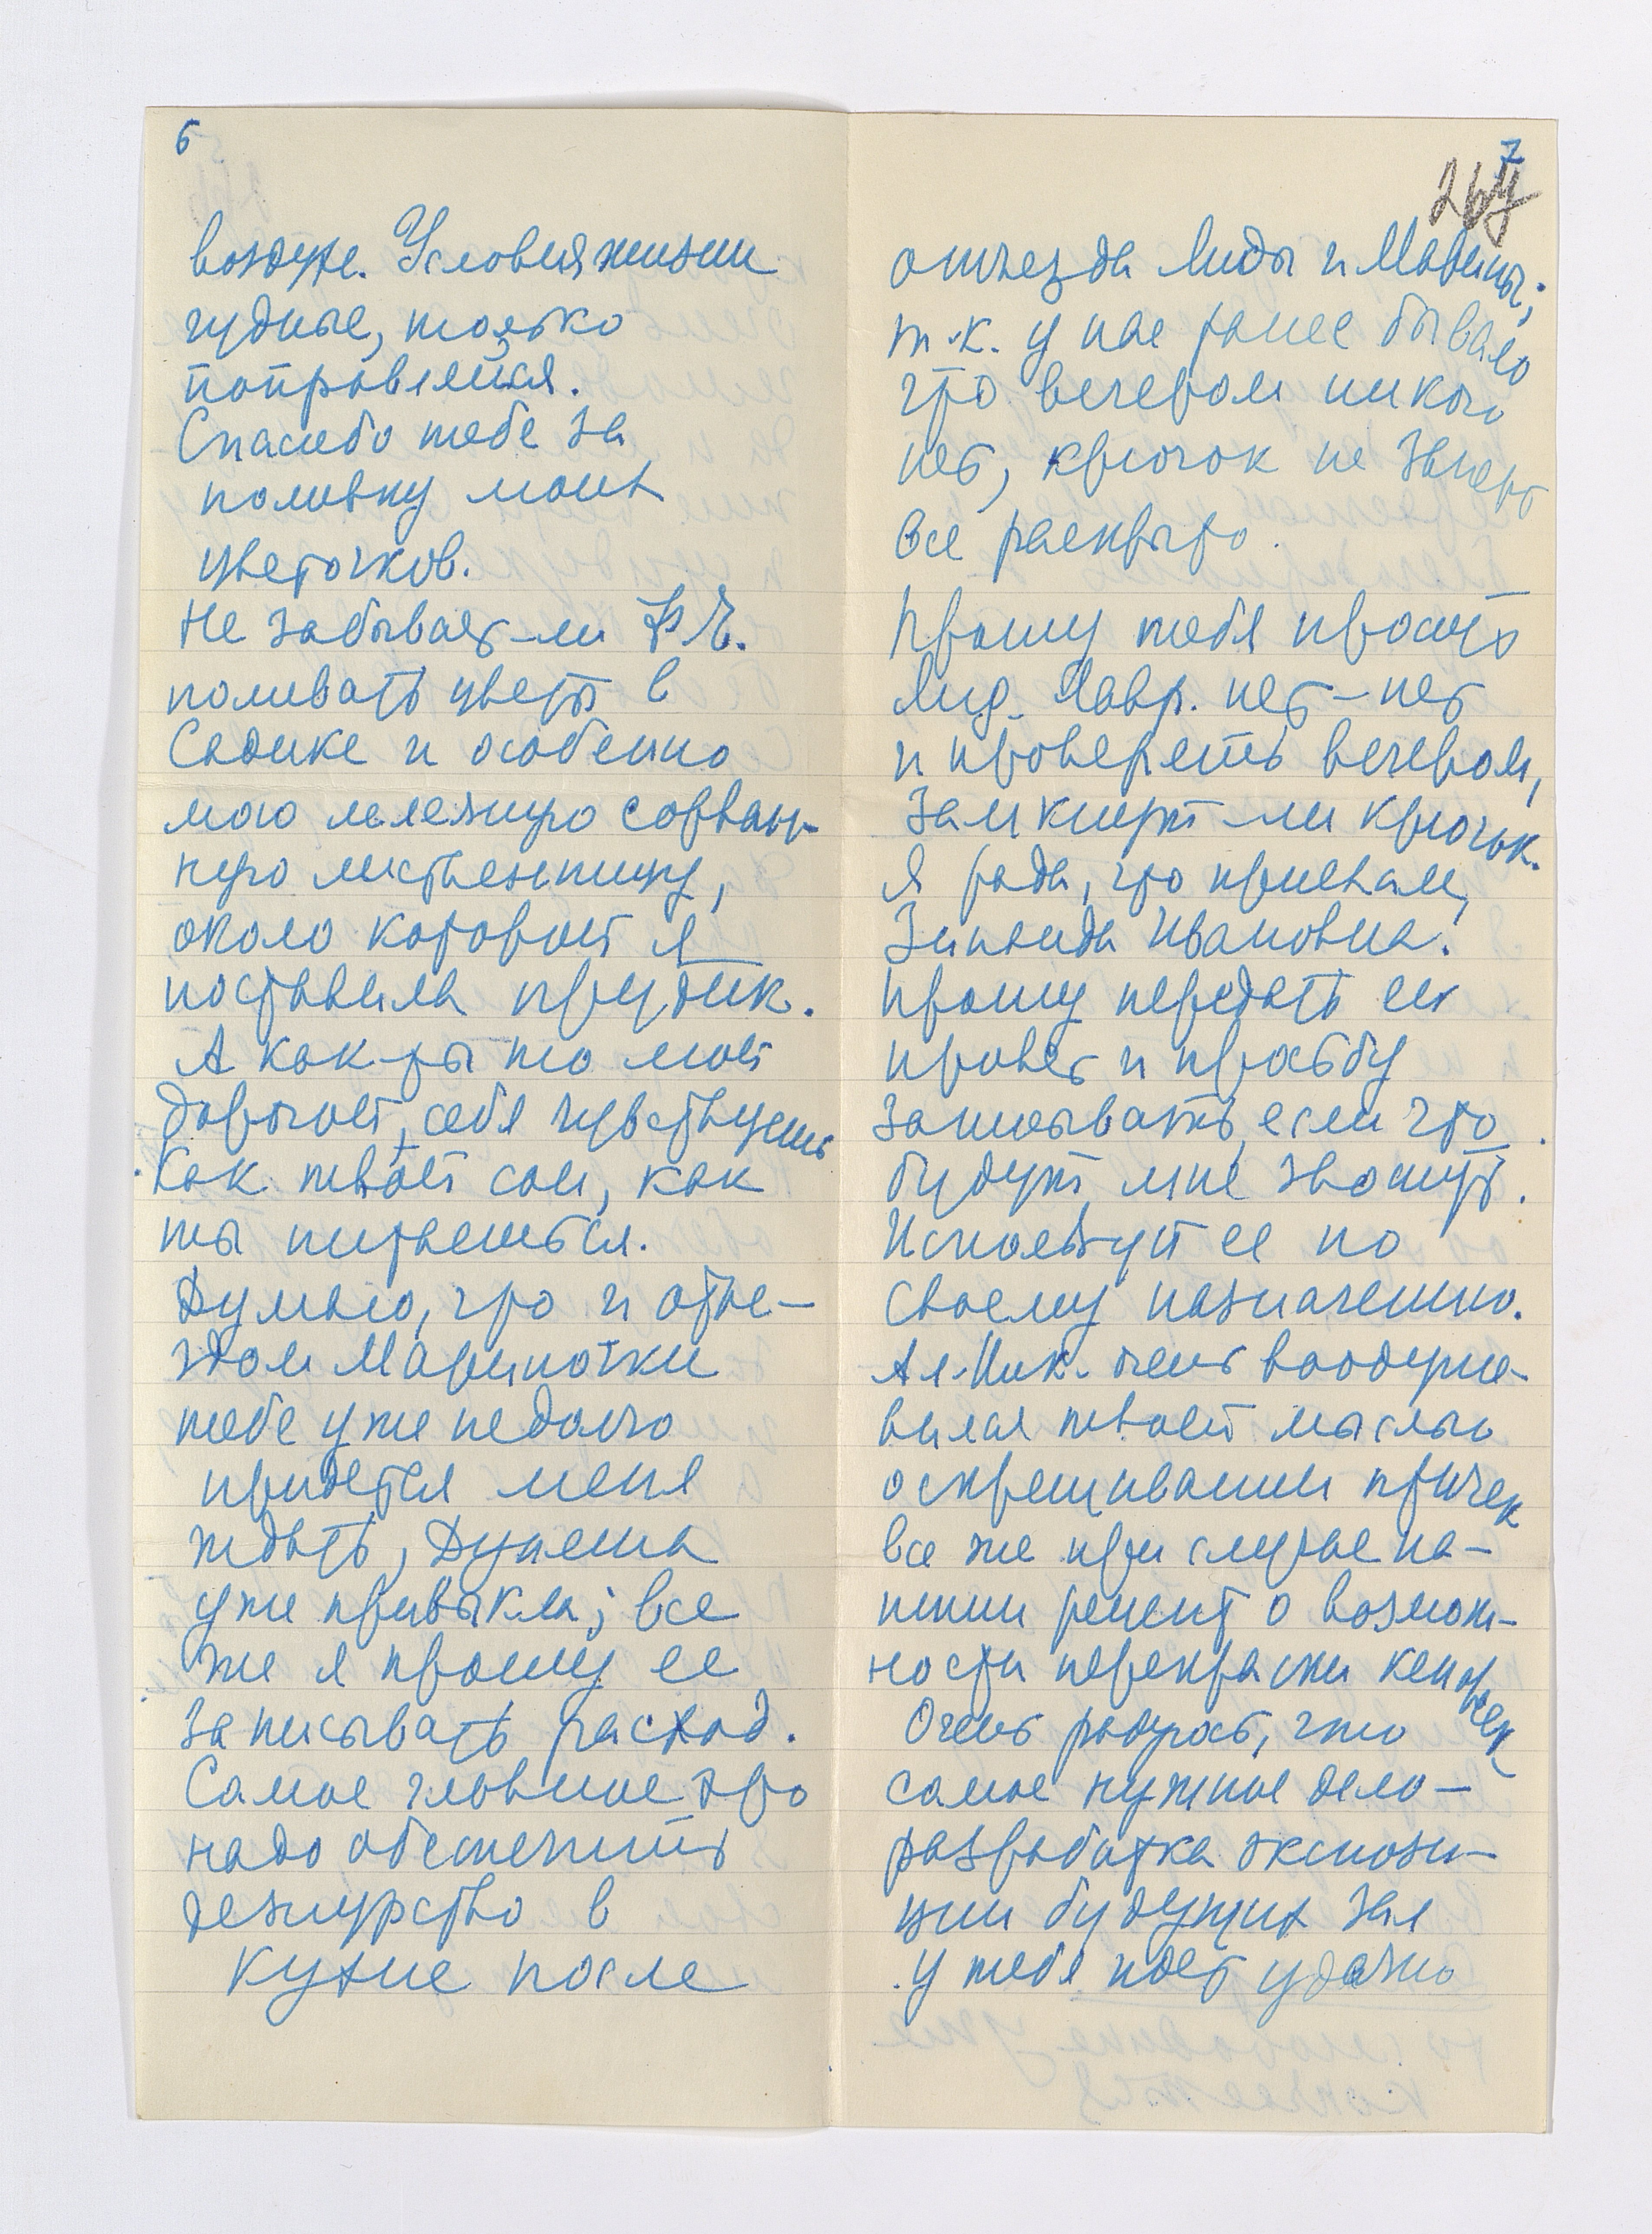 6
воздухе. Условия жизни
чудные, только
поправляйся.
Спасибо тебе за
поливку моих
цветочков.
Не забывает-ли
поливать цветы в
Садике и особенно
мою
лиственницу,
около которой я
поставила прутик.
А как-ты то мой
дорогой, себя чувствуешь
Как твой сон, как
ты питаешься.
Думаю, что и отъе-
здом Мариночки
тебе уже недолго
придется меня
ждать, Дунаша
уже привыкла; все
же я прошу ее
записывать расход.
Самое главное это
надо обеспечить
дежурство в
кухне после
7
отъезда Лиды и Марины;
т.к. у нас ранее бывало
что вечером никого
нет, крючок не заперт
все раскрыто.
Прошу тебя просить
Лид. Лавр. нет-нет
и проверить вечером,
замкнут-ли крючок.
Я рада, что приехали,
Зинаида Ивановна.
Прошу передать ей
привет и просьбу
записывать, если что
будут мне звонить.
Используй ее по
своему назначению.
Ал. Ник. очень воодуше-
вился твоей мыслью
о скрещивании птичек
все же при случае на-
пиши рецепт о возмож-
ности перекраски кенареек
Очень радуюсь, что
самое нужное дело-
разработка экспози-
ции будущих зал
у тебя идет удачно